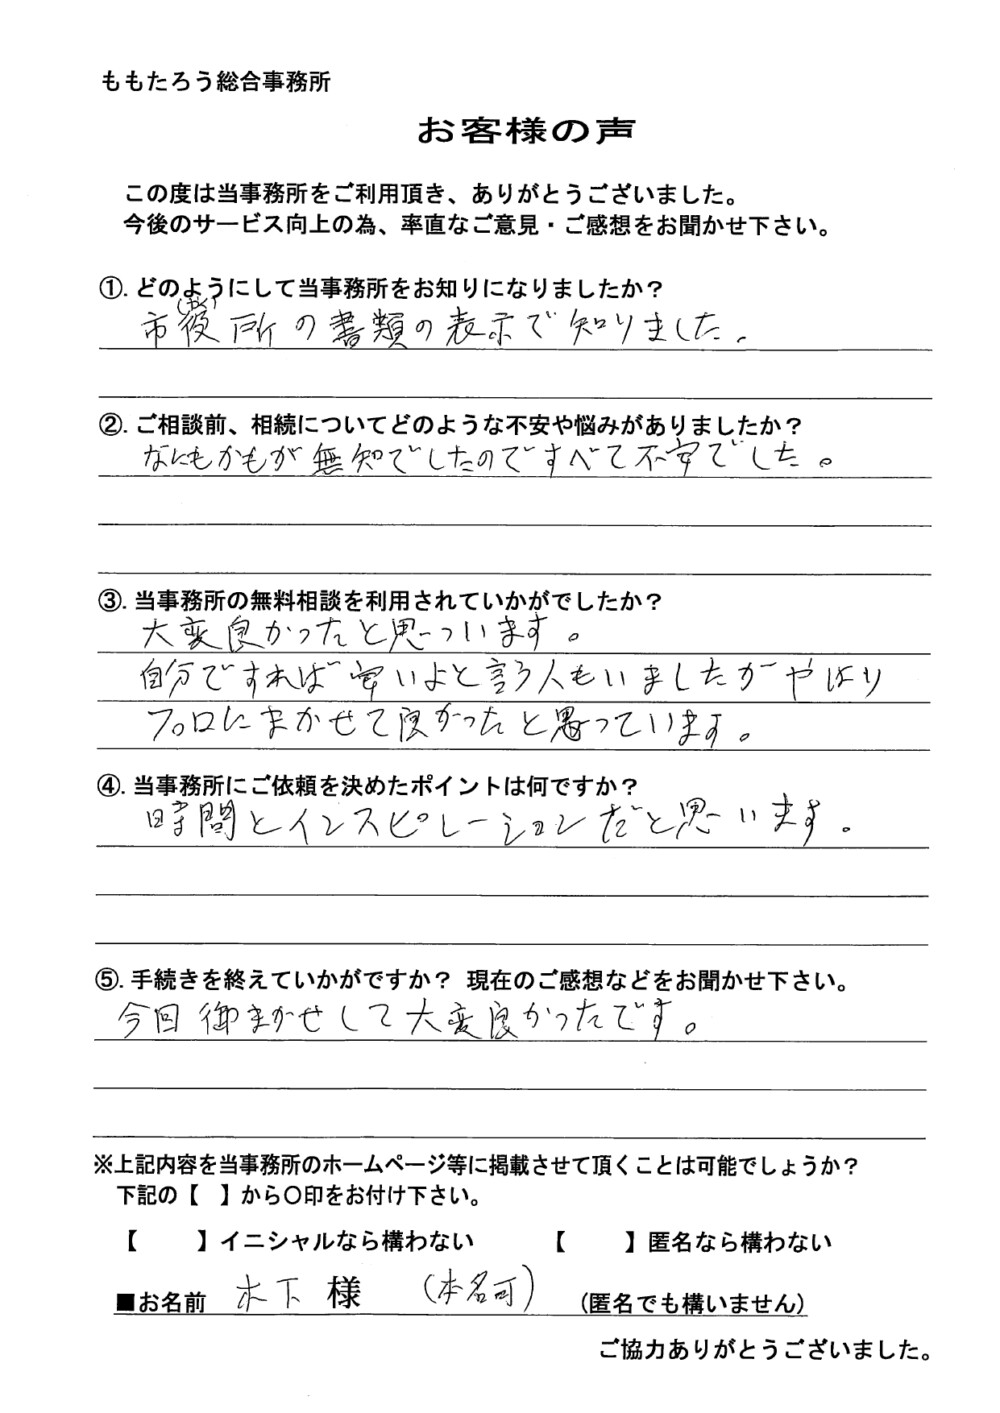 ももたろう総合事務所
お客様の声
この度は当事務所をご利用頂き、ありがとうございました。
今後のサービス向上の為、率直なご意見・ご感想をお聞かせ下さい。
①. どのようにして当事務所をお知りになりましたか？
(やく)
市役所の書類の表示で知りました。
②. ご相談前、相続についてどのような不安や悩みがありましたか？
なにもかもが無知でしたのですべて不安でした。
③. 当事務所の無料相談を利用されていかがでしたか？
大変良かったと思っいます。
自分ですれば安いよと言う人もいましたがやはり
プロにまかせて良かったと思っています。
④. 当事務所にご依頼を決めたポイントは何ですか？
時間とインスピレーションだと思います。
⑤. 手続きを終えていかがですか？ 現在のご感想などをお聞かせ下さい。
今回御まかせして大変良かったです。
※上記内容を当事務所のホームページ等に掲載させて頂くことは可能でしょうか？
下記の【 】から〇印をお付け下さい。
【 】イニシャルなら構わない 【 】匿名なら構わない
■お名前 木下 様 (本名可) （匿名でも構いません）
ご協力ありがとうございました。